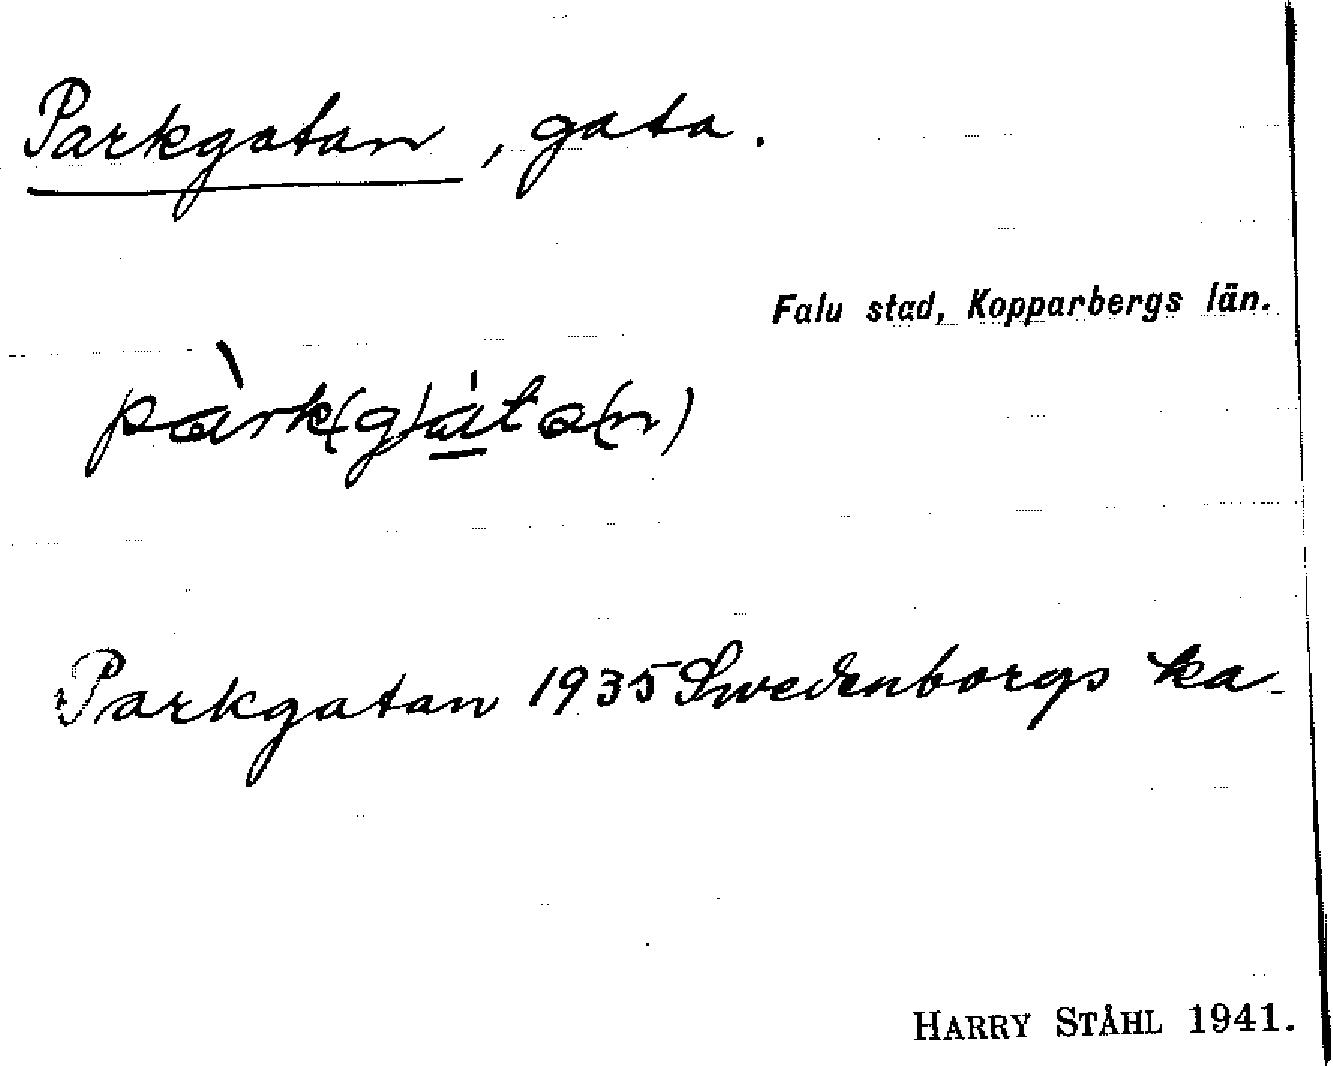 Parkgatan, gata.
Falu stad, Kopparbergs län.
pàrk(g)áta(n)
Parkgatan 1935 Swedenborgs ka-
HARRY STÅHL 1941.